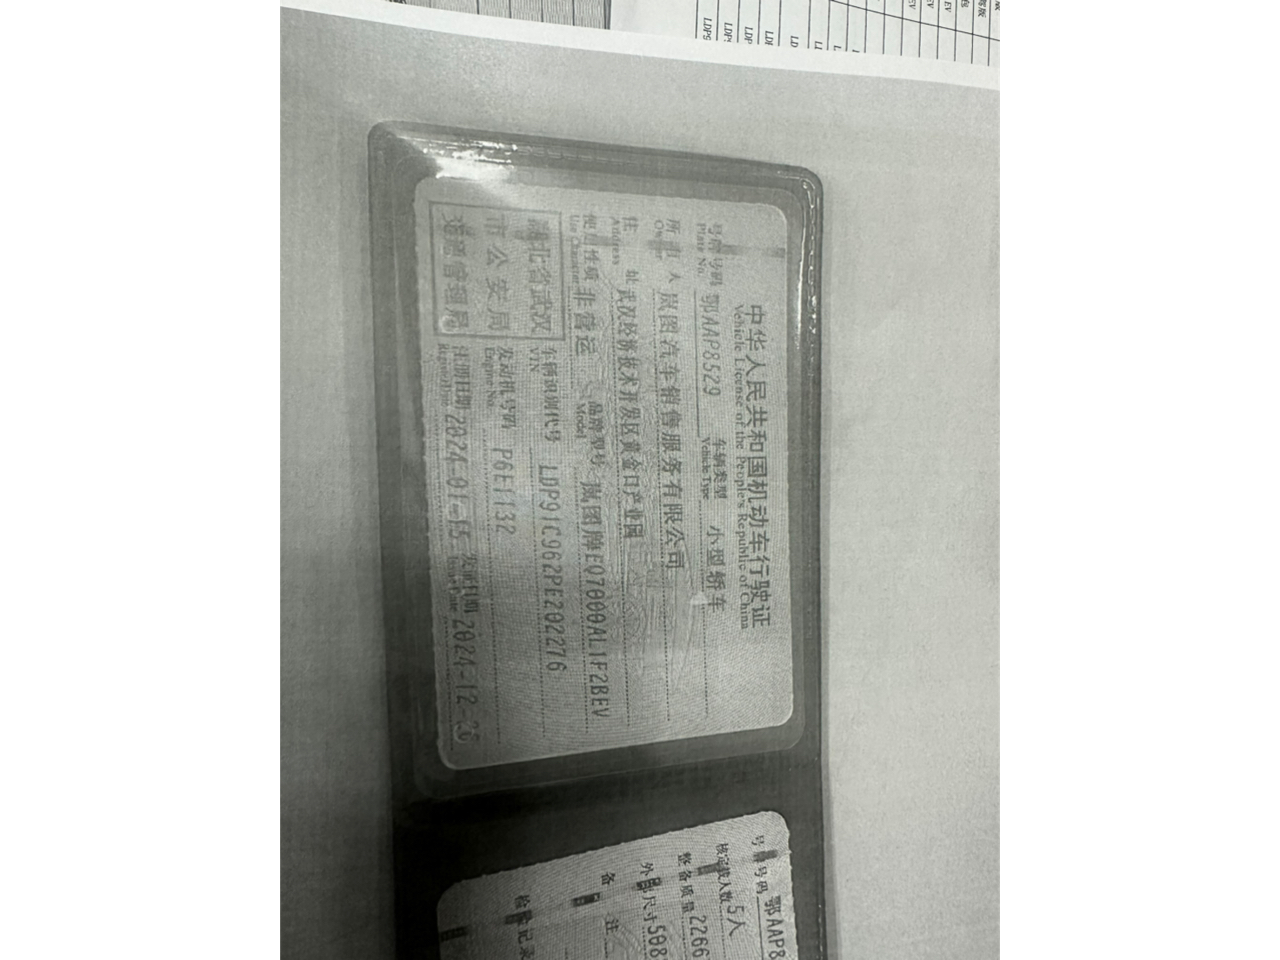 中华人民共和国机动车行驶证
Vehicle License of the People's Republic of China
号牌号码 鄂AAP8529 车辆类型 小型轿车
Plate No. Vehicle Type
所有人 岚图汽车销售服务有限公司
Owner
住址 武汉经济技术开发区黄金口产业园
Address
使用性质 非营运 品牌型号 岚图牌EQ7000AL1F2BEV
Use Character Model
湖北省武汉
市公安局
交通管理局
车辆识别代号 LDP91C962PE202276
VIN
发动机号码 P6E1132
Engine No.
注册日期 2024-01-15 发证日期 2024-12-26
Register Date Issue Date
号牌号码 鄂AAP8
核定载人数 5人
整备质量 2266
外廓尺寸 508
备注
检验记录